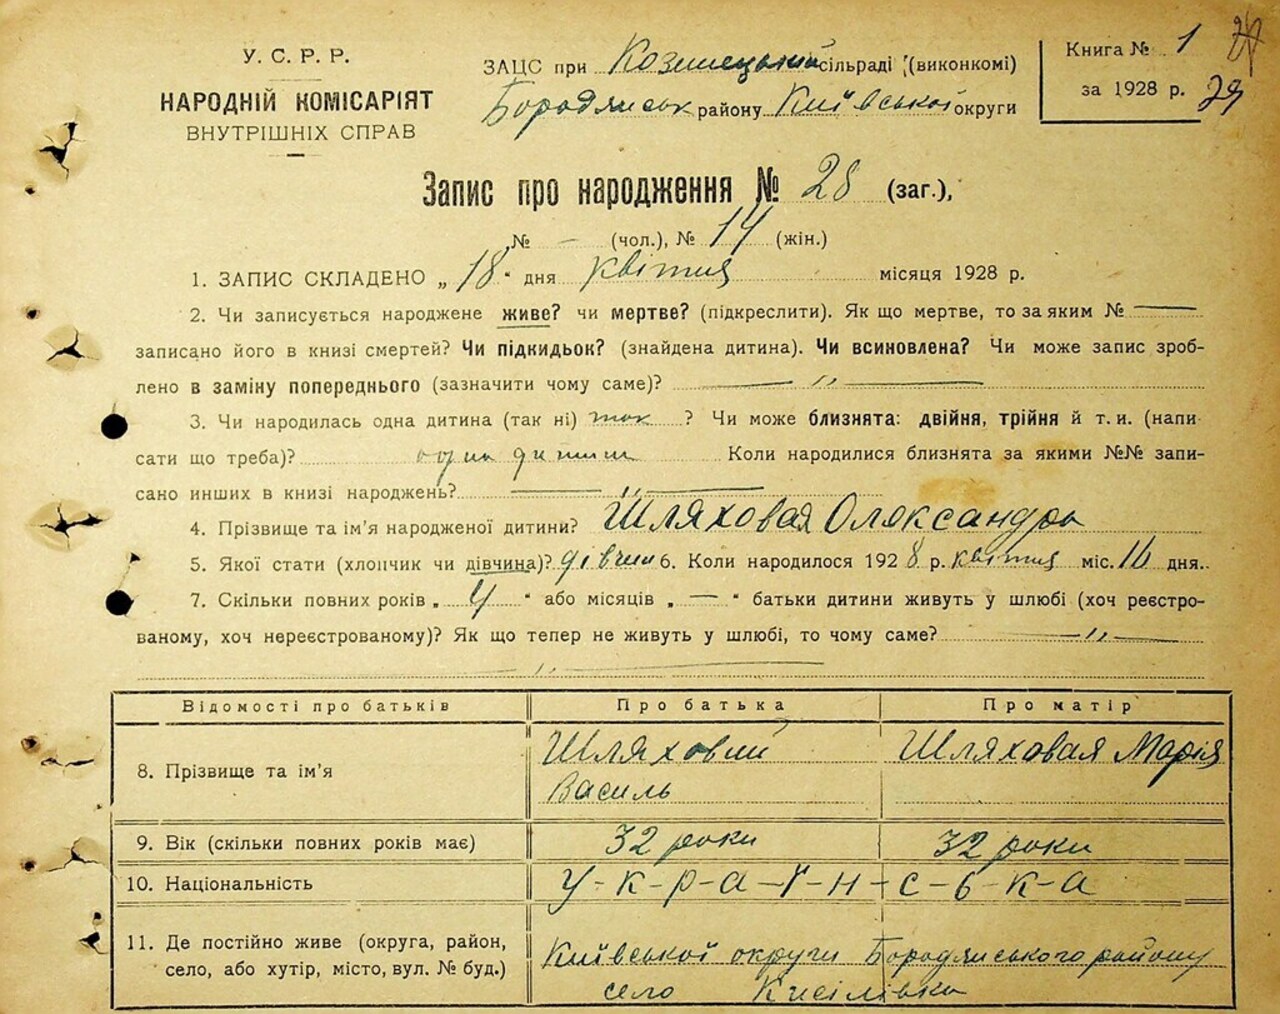 У. С. Р. Р.
НАРОДНІЙ КОМІСАРІЯТ
ВНУТРІШНІХ СПРАВ
ЗАЦС при Козинецькій сільраді (виконкомі)
Бородянськ району Київської округи
Книга № 1
за 1928 р.
29
Запис про народження № 28 (заг.),
№ — (чол.), № 14 (жін.)
1. ЗАПИС СКЛАДЕНО „18" дня квітня місяця 1928 р.
2. Чи записується народжене живе? чи мертве? (підкреслити). Як що мертве, то за яким № —
записано його в книзі смертей? Чи підкидьок? (знайдена дитина). Чи всиновлена? Чи може запис зроб-
лено в заміну попереднього (зазначити чому саме)? — „ —
3. Чи народилась одна дитина (так ні) так ? Чи може близнята: двійня, трійня й т. и. (напи-
сати що треба)? одна дитина Коли народилися близнята за якими №№ запи-
сано инших в книзі народжень? — „ —
4. Прізвище та ім'я народженої дитини? Шляховая Олександра
5. Якої стати (хлопчик чи дівчина)? дівчин 6. Коли народилося 1928 р. квітня міс. 16 дня.
7. Скільки повних років „ 4 " або місяців „ — " батьки дитини живуть у шлюбі (хоч реєстро-
ваному, хоч нереєстрованому)? Як що тепер не живуть у шлюбі, то чому саме? — „ —
— „ —
Відомості про батьків Про батька Про матір
8. Прізвище та ім'я Шляховий Василь Шляховая Марія
9. Вік (скільки повних років має) 32 роки 32 роки
10. Національність У-к-р-а-ї-н-с-ь-к-а
11. Де постійно живе (округа, район, Київської округи Бородянського району
село, або хутір, місто, вул. № буд.) село Кисілівка